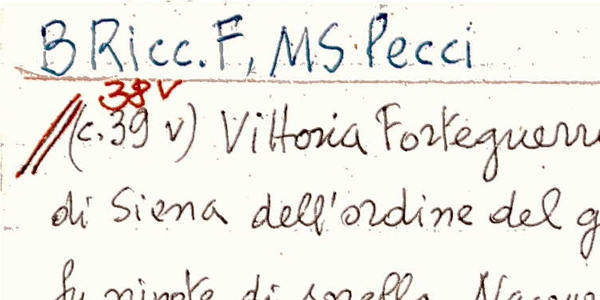 B Ricc. F, MS Pecci
38 v
(c. 39 v) Vittoria Forteguerr
di Siena dell'ordine del g
fu nipote di quella